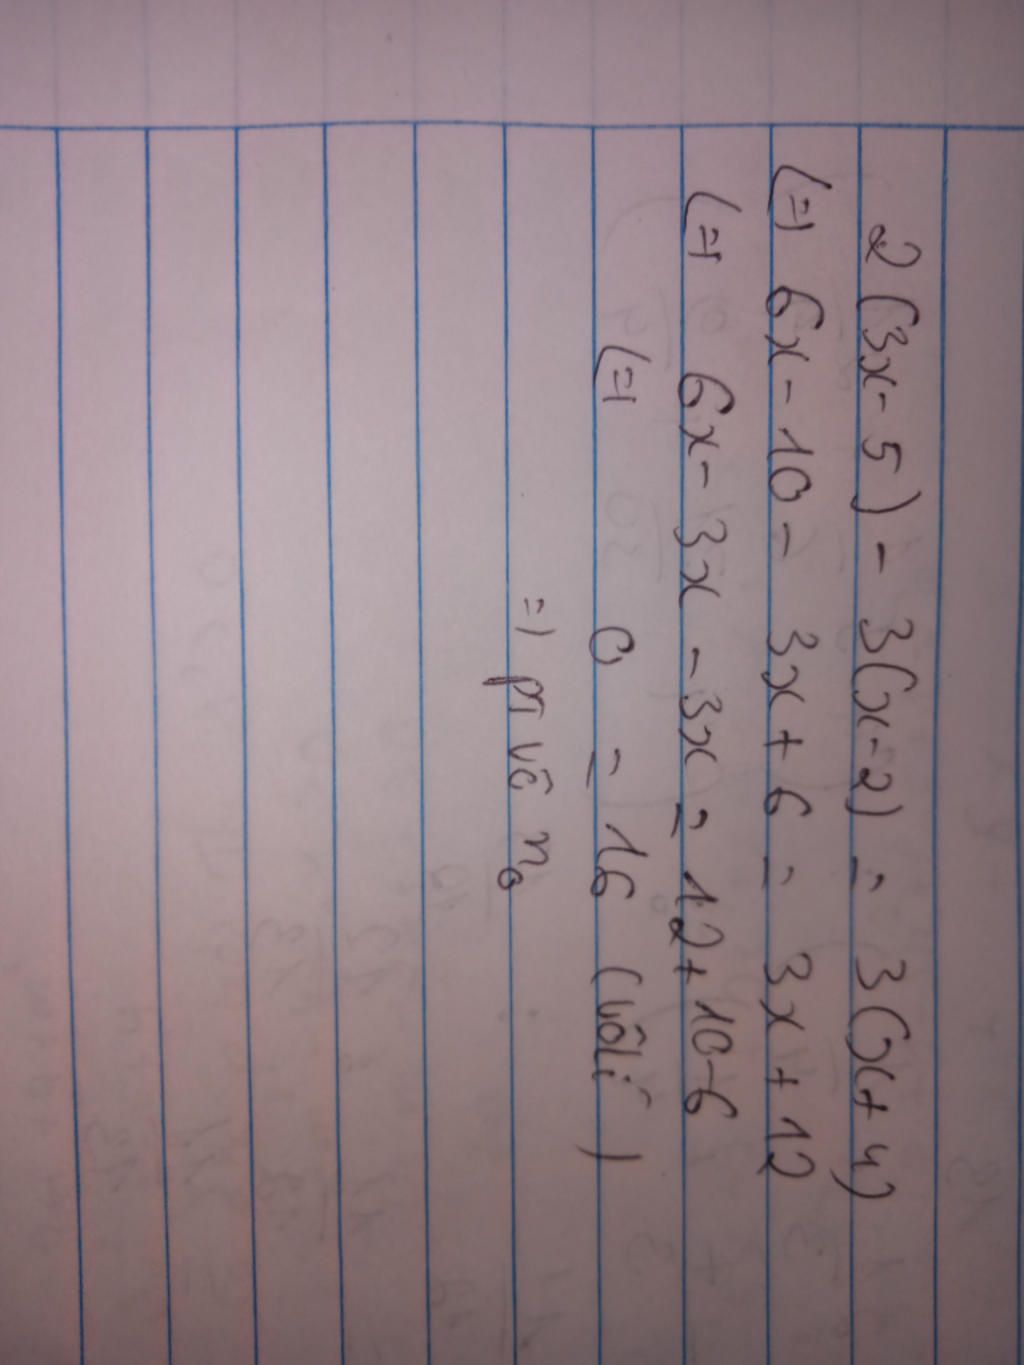 2(3x-5) - 3(x-2) = 3(x+4)
(=) 6x - 10 - 3x + 6 = 3x + 12
(=) 6x - 3x - 3x = 12 + 10 - 6
(=) 0 = 16 (vôlí)
=) pt vô n0